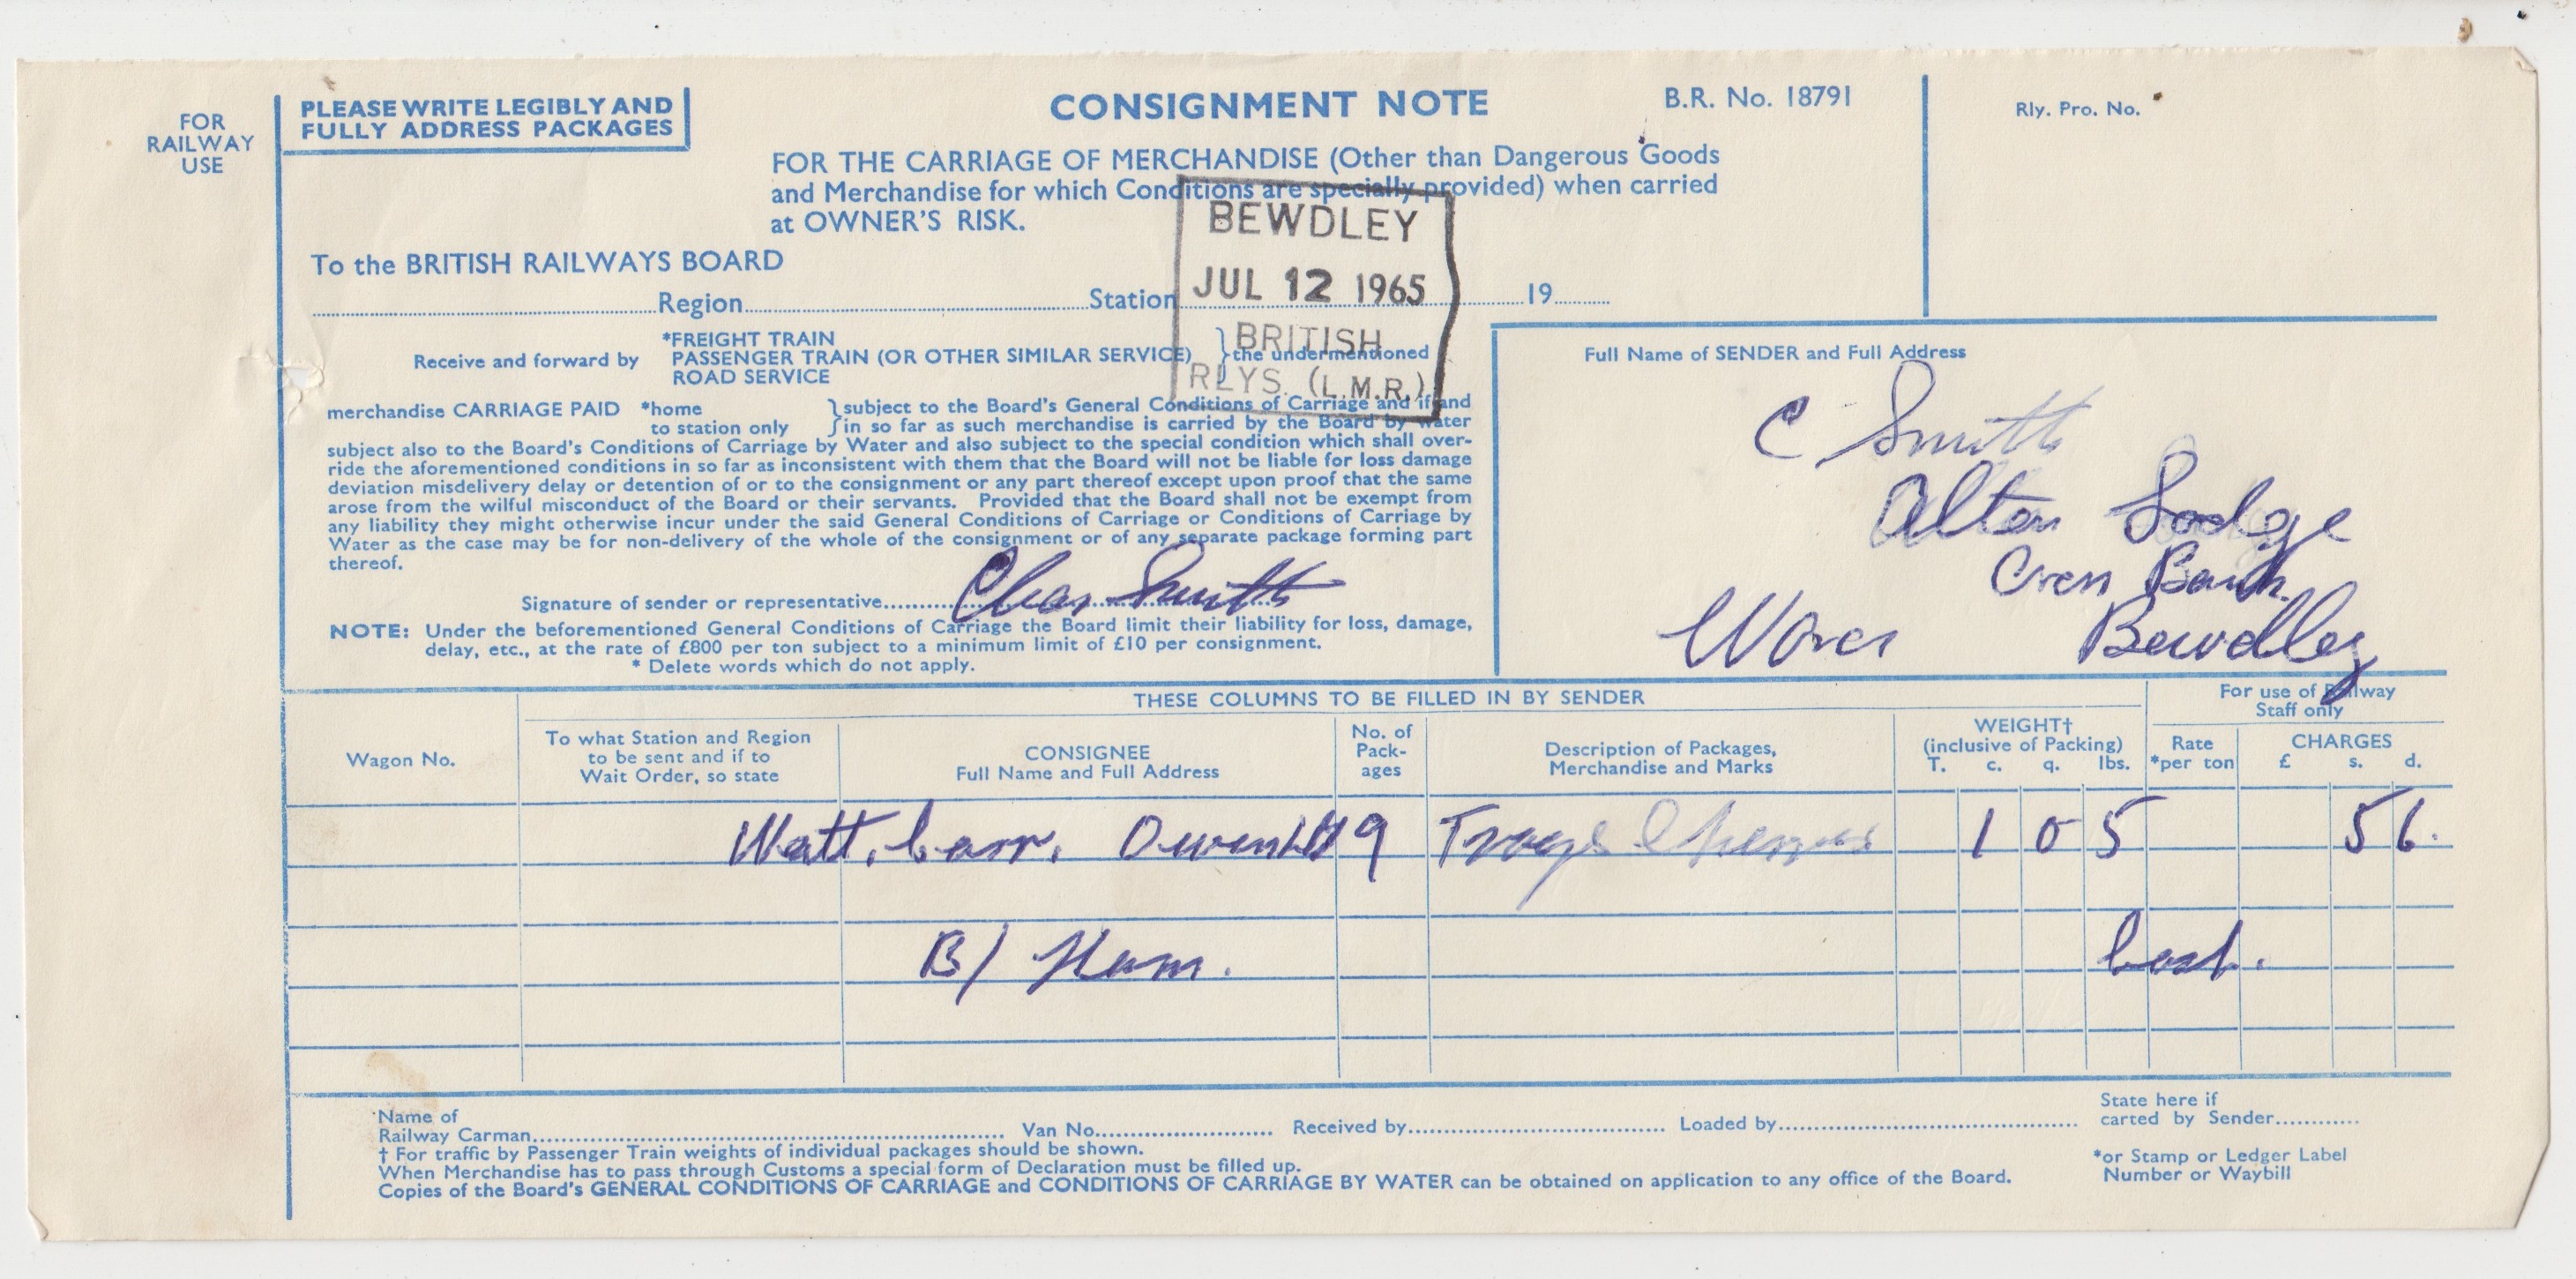 FOR
RAILWAY
USE
PLEASE WRITE LEGIBLY AND
FULLY ADDRESS PACKAGES
CONSIGNMENT NOTE
B.R. No. 18791
Rly. Pro. No.
FOR THE CARRIAGE OF MERCHANDISE (Other than Dangerous Goods
and Merchandise for which Conditions are specially provided) when carried
at OWNER'S RISK.
BEWDLEY
JUL 12 1965
BRITISH
RLYS. (L.M.R.)
To the BRITISH RAILWAYS BOARD
Region Station 19
Receive and forward by
*FREIGHT TRAIN
PASSENGER TRAIN (OR OTHER SIMILAR SERVICE)
ROAD SERVICE
} the undermentioned
merchandise CARRIAGE PAID *home } subject to the Board's General Conditions of Carriage and if and
to station only } in so far as such merchandise is carried by the Board by water
subject also to the Board's Conditions of Carriage by Water and also subject to the special condition which shall over-
ride the aforementioned conditions in so far as inconsistent with them that the Board will not be liable for loss damage
deviation misdelivery delay or detention of or to the consignment or any part thereof except upon proof that the same
arose from the wilful misconduct of the Board or their servants. Provided that the Board shall not be exempt from
any liability they might otherwise incur under the said General Conditions of Carriage or Conditions of Carriage by
Water as the case may be for non-delivery of the whole of the consignment or of any separate package forming part
thereof.
Signature of sender or representative Chas Smith
NOTE: Under the beforementioned General Conditions of Carriage the Board limit their liability for loss, damage,
delay, etc., at the rate of £800 per ton subject to a minimum limit of £10 per consignment.
* Delete words which do not apply.
Full Name of SENDER and Full Address
C Smith
Alton Lodge
Bank
Worcs Bewdley
THESE COLUMNS TO BE FILLED IN BY SENDER
For use of Railway
Staff only
Wagon No.
To what Station and Region
to be sent and if to
Wait Order, so state
CONSIGNEE
Full Name and Full Address
No. of
Pack-
ages
Description of Packages,
Merchandise and Marks
WEIGHT†
(inclusive of Packing)
T. c. q. lbs.
Rate
*per ton
CHARGES
£ s. d.
9 1 0 5 5 6.
B/ Ham.
Name of
Railway Carman Van No. Received by Loaded by
State here if
carted by Sender
† For traffic by Passenger Train weights of individual packages should be shown.
When Merchandise has to pass through Customs a special form of Declaration must be filled up.
Copies of the Board's GENERAL CONDITIONS OF CARRIAGE and CONDITIONS OF CARRIAGE BY WATER can be obtained on application to any office of the Board.
*or Stamp or Ledger Label
Number or Waybill